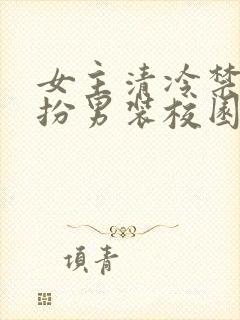 女主清冷禁
扮男装校园
项青